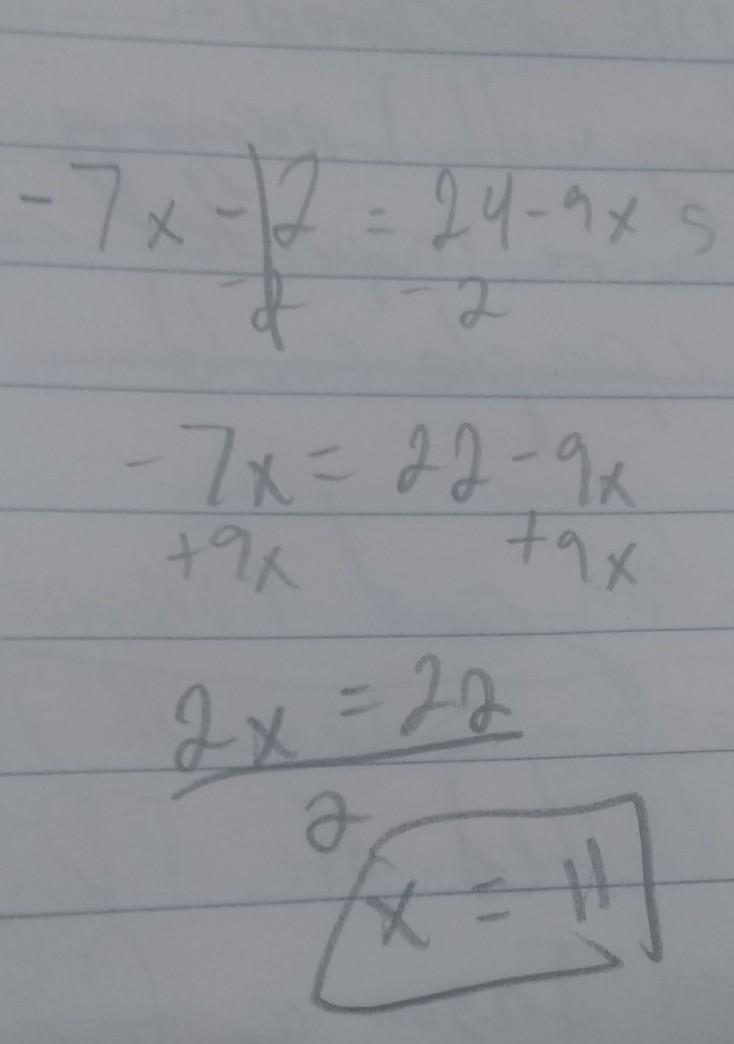 -7x - 2 = 24 - 9x
-2 -2
-7x = 22 - 9x
+9x +9x
2x = 22
2
x = 11